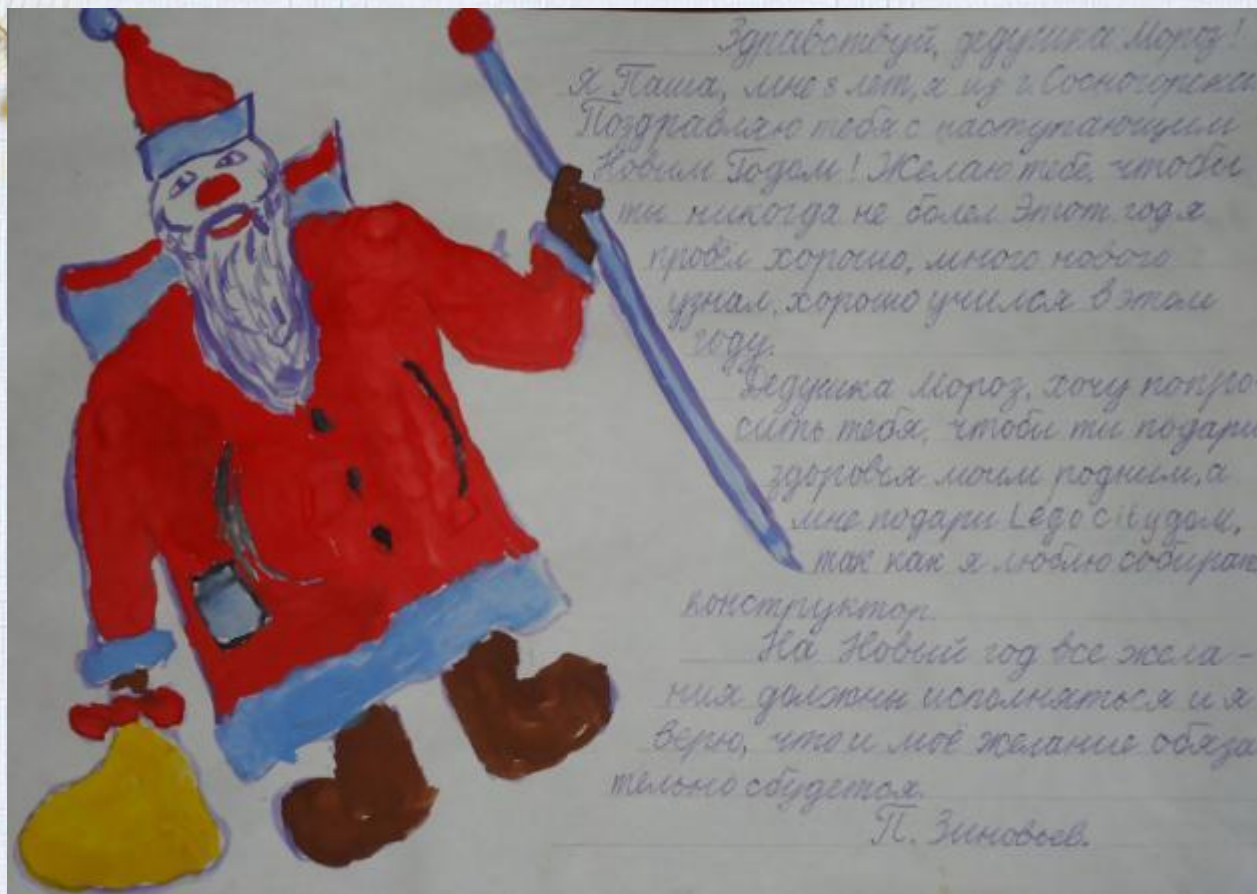 Здравствуй, дедушка Мороз!
Я Паша, мне 8 лет, я из г. Сосногорска
Поздравляю тебя с наступающим
Новым Годом! Желаю тебе, чтобы
ты никогда не болел. Этот год я
провёл хорошо, много нового
узнал, хорошо учился в этом
году.
Дедушка Мороз, хочу попро
сить тебя, чтобы ты подари
здоровья моим родным, а
мне подари Lego city дом,
так как я люблю собират
конструктор.
На Новый год все жела-
ния должны исполняться и я
верю, что и моё желание обяза
тельно сбудется.
П. Зиновьев.